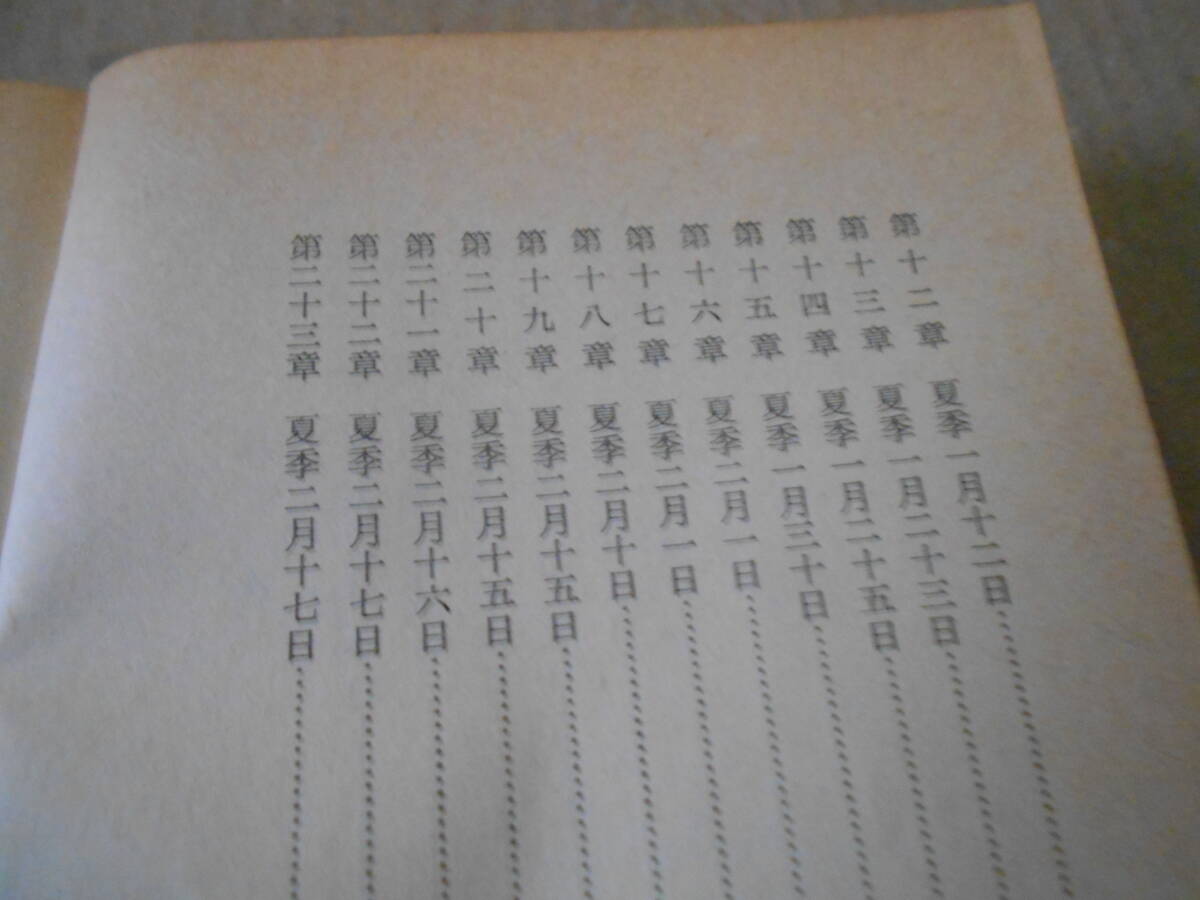 第十二章 夏季一月十二日……………
第十三章 夏季一月二十三日……………
第十四章 夏季一月二十五日……………
第十五章 夏季一月三十日……………
第十六章 夏季二月一日……………
第十七章 夏季二月一日……………
第十八章 夏季二月十日……………
第十九章 夏季二月十五日……………
第二十章 夏季二月十五日……………
第二十一章 夏季二月十六日……………
第二十二章 夏季二月十七日……………
第二十三章 夏季二月十七日……………